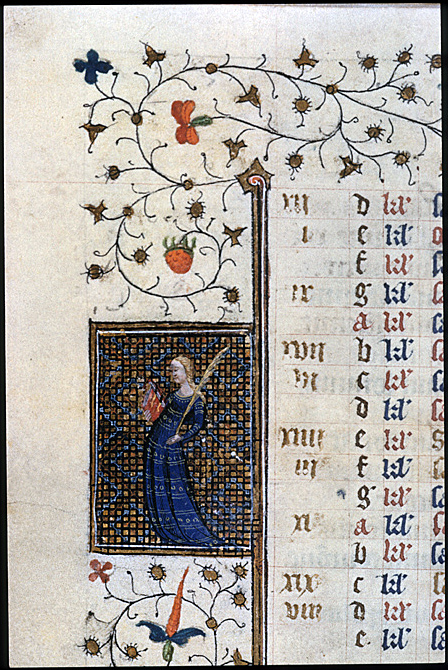 xii d kl
i e kl
f kl
ix g kl
a kl
xvii b kl
vi c kl
d kl
xiiii e kl
iii f kl
g kl
xi a kl
b kl
xix c kl
viii d kl
e kl